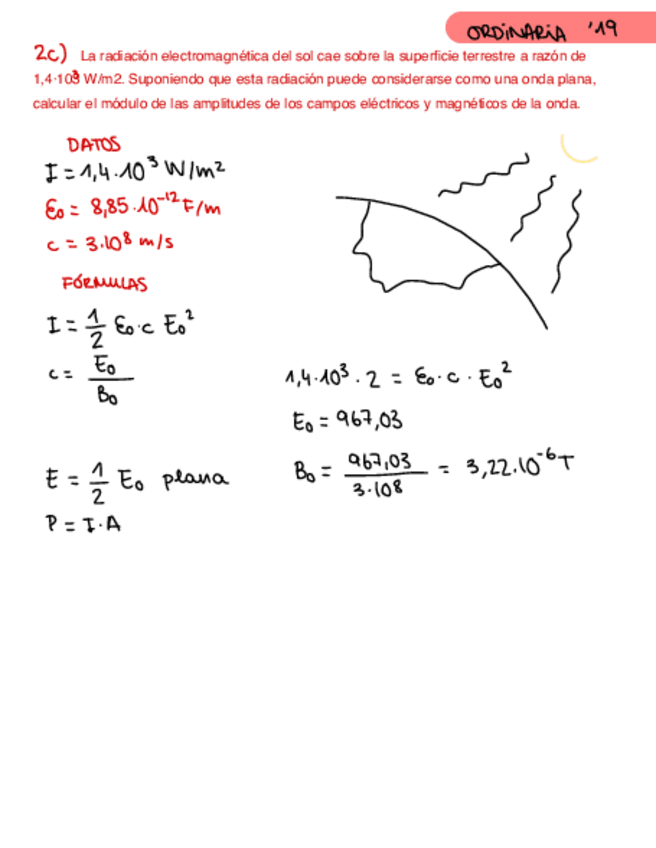 ORDINARIA '19
2c) La radiación electromagnética del sol cae sobre la superficie terrestre a razón de
1,4·10³ W/m2. Suponiendo que esta radiación puede considerarse como una onda plana,
calcular el módulo de las amplitudes de los campos eléctricos y magnéticos de la onda.
DATOS
I = 1,4·10³ W/m²
ε₀ = 8,85·10⁻¹² F/m
c = 3·10⁸ m/s
FÓRMULAS
I = 1/2 ε₀·c E₀²
c = E₀/B₀
E = 1/2 E₀ plana
P = I·A
1,4·10³·2 = ε₀·c·E₀²
E₀ = 967,03
B₀ = 967,03/3·10⁸ = 3,22·10⁻⁶ T